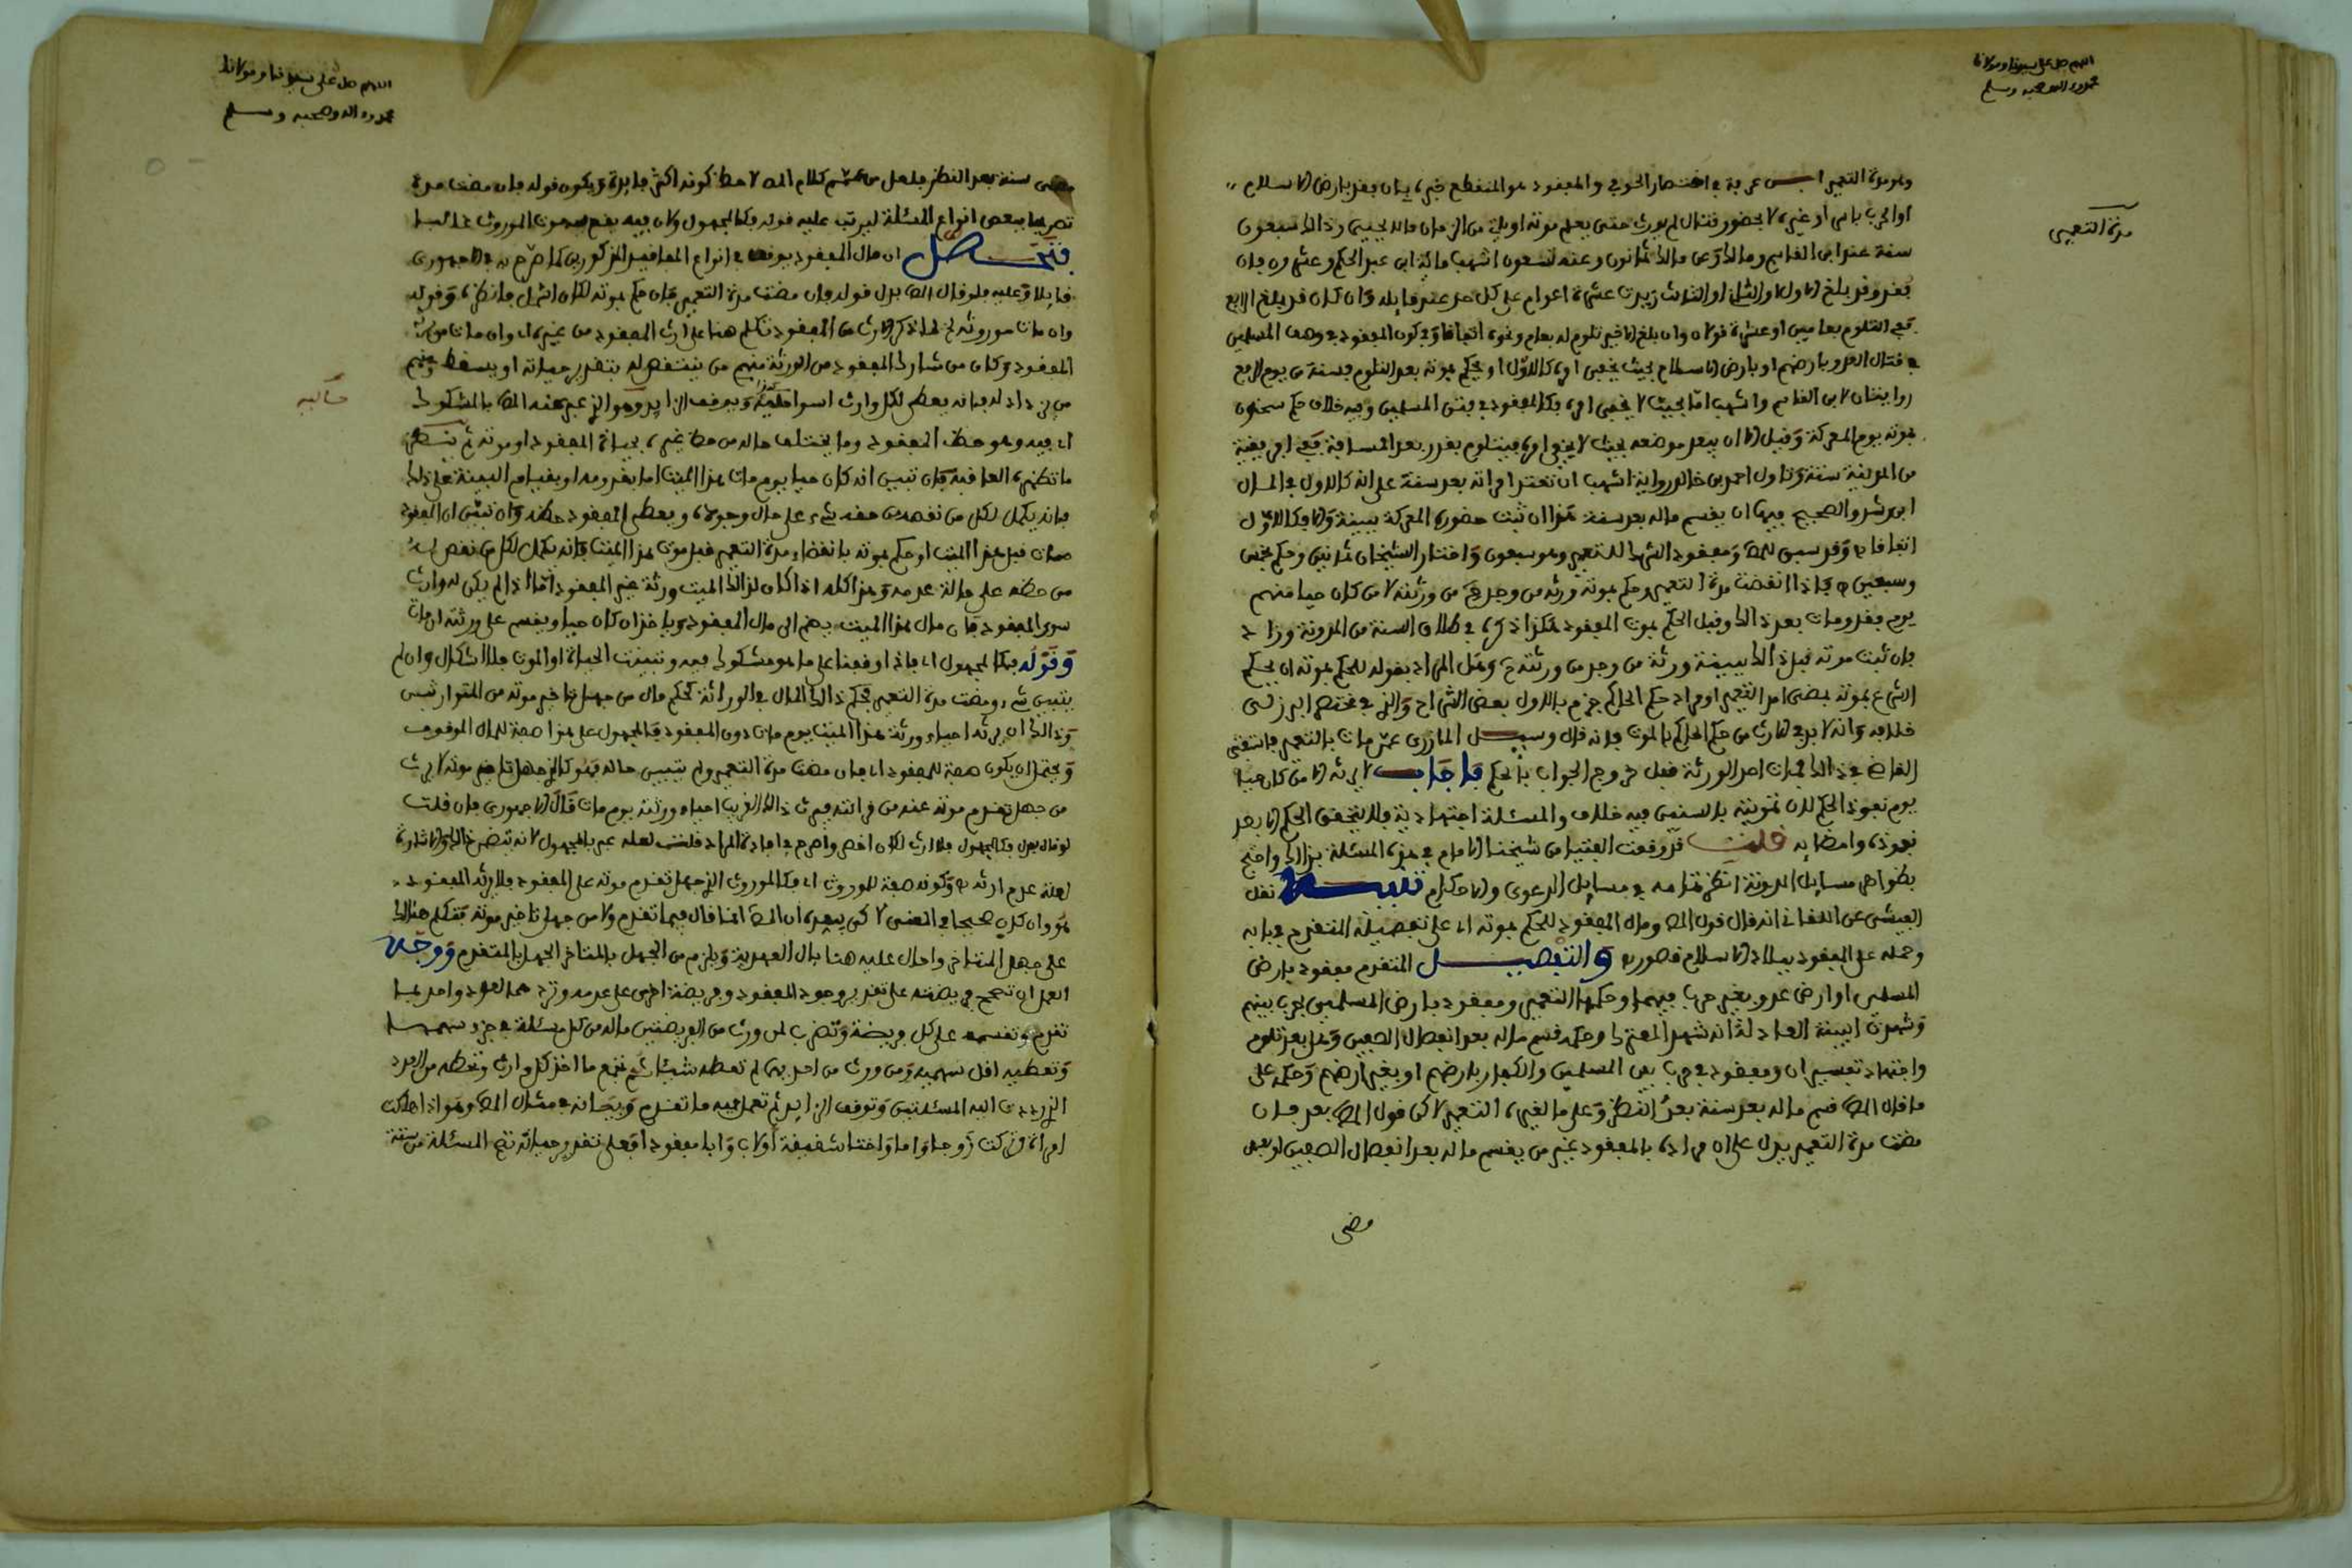 اللهم صل على سيدنا ومولانا
محمد وءاله وصحبه وسلم
مدة التعمير
وهو مدة التعمير ابن عرفة في اختصار الحوفي والمفقود هو المنقطع خبره يان يفقد بارض الاسلام
او الحرب باسر او غيره لا بحضور قتال لم يورث حتى يعلم موته او ياتي من الزمان ما لا يحيى وذالك سبعون
سنة عند ابن القاسم ومالك وعن مالك ثمانون وعنه تسعون اشهب ماية ابن عبد الحكم وعشرون فان
فقد وقد بلغ الاول او الثاني او الثالث زيدت عشرة اعوام على كل حد عند قايله وان كان قد بلغ الرابع
ففي التلوم بعامين او عشرة قولان وان بلغ الاخير تلوم له بعام ونحوه اتفاقا وفي كون المفقود في وقف المسلمين
في قتال العدو بارضهم او بارض الاسلام بحيث يخفى امره كالاول او يحكم بموته بعد التلوم فسنة من يوم الرفع
روايتان لابن القاسم واشهب اما بحيث لا يخفى امره فكالمفقود في فتن المسلمين وفيه خلاف حكم سحنون
بموته يوم المعركة وقيل الا ان يبعد موضعه بحيث لا يخفى امره فيتلوم بقدر بعد المسافة ففي افريقية
من المدينة سنة وتاول احمد بن خالد رواية اشهب ان تعتد امراته بعد سنة على انه كالاول في المال
ابن رشد والصحيح فيها ان يقسم ماله بعد سنة هذا ان ثبت حضوره المعركة ببينة والا فكالاول
اتفاقا ه وقد سبق للمص ومفقود الشرك للتعمير وهو سبعون واختار الشيخان ثمانين وحكم بخمس
وسبعين ه فاذا انقضت مدة التعمير وحكم بموته ورثه من وجد من ورثته لا من كان حيا منهم
يوم فقد ومات بعد ذالك وقبل الحكم بموت المفقود هكذا ذكره في طلاق السنة من المدونة وزاد
فان ثبت موته قبل ذالك ببينة ورثه من وجد من ورثته وهل المراد بقوله للحكم بموته ان يحكم
الشرع بموته بمضي امد التعمير او مراده حكم الحاكم جزم بالاول بعض الشراح والذي في مختصر البرزلي
خلافه وانه لا بد في الارث من حكم الحاكم بالموت فانه قال وسيل المازري عمن مات بالتعمير فاستفتى
القاضي في ذالك فمات احد الورثة قبل خروج الجواب بالحكم فاجاب لا يرثه الا من كان حيا
يوم نفوذ الحكم لان تمويته بالسنين فيه خلاف والمسئلة اجتهادية فلا يتحقق الحكم الا بعد
نفوذه وامضايه قلت قد وقعت الفتيا من شيخنا الامام في هذه المسئلة بذالك واحتج
بظواهر مسايل المدونة انظر تمامه في مسايل الدعوى والاحكام تنبيه نقل
الفيشي عن اللقاني انه قال قول المص ومال المفقود للحكم بموته اي على تفصيله المتقدم في بابه
وحمله على المفقود ببلاد الاسلام قصور ه والتفصيل المتقدم مفقود بارض
المسلمين او ارض عدو بغير حرب فيهما وحكمها التعمير ومفقود بارض المسلمين بحرب بينهم
وشهدت البينة العادلة انه شهد المعترك وحكمه قسم ماله بعد انفصال الصفين وهل بعد تلوم
واجتهاد تفسيران ومفقود في حرب بين المسلمين والكفار بارضهم او بغير ارضهم وحكمه على
ما قال المص قسم ماله بعد سنة بعد النظر وعلى ما لغيره التعمير لاكن قول المص بعد فان
مضت مدة التعمير يدل على ان مراده بالمفقود غير من يقسم ماله بعد انفصال الصفين او بعد
مضي
اللهم صل على سيدنا ومولانا
محمد وءاله وصحبه وسلم
مضي سنة بعد النظر فلعل من عمم كلام المص لاحظ كونه اكثر فايدة ويكون قوله فان مضت مدة
تصريحا ببعض انواع المسئلة ليرتب عليه قوله فكالمجهول ولان فيه يقع موت الموروث غالبا
فتحصل ان مال المفقود يوقف في انواع المفاقيد المذكورين كما صرح به الاجهوري
قايلا وعليه فلو قال المص بدل قوله فان مضت مدة التعمير فان حكم بموته لكان اشمل فانظره وقوله
وان مات موروثه لما ذكر الارث من المفقود تكلم هنا على ارث المفقود من غيره اي وان مات مورث
المفقود وكان من شارك المفقود من الورثة منهم من ينتقص له بتقدير حياته او يسقط ومنهم
من يزاد له فانه يعطى لكل وارث اسوا حاليه ويوقف الزايد وهو الذي عبر عنه المص بالمشكوك
اي فيه وهو حظ المفقود وما يختلف حاله من حظ غيره بحياة المفقود او موته ثم ينتظر
ما تظهره العاقبة فان تبين انه كان حيا يوم مات هذا الميت اما بقدومه او بقيام البينة على ذالك
فانه يكمل لكل من نقص من حقه شيء على حال وجوده ويعطى المفقود حظه وان تبين ان المفقود
مات قبل هذا الميت او حكم بموته بانقضاء مدة التعمير قبل موت هذا الميت فانه يكمل لكل من نقص له
من حظه على حالة عدمه وهذا كله اذا كان لذالك الميت ورثة غير المفقود اما اذا لم يكن له وارث
سوى المفقود فان مال هذا الميت يضم الى مال المفقود وياخذه ان كان حيا ويقسم على ورثته ان مات
وقوله فكالمجهول اي فاذا وقفنا على ما هو مشكوك فيه وتبينت الحياة او الموت فلا اشكال وان لم
يتبين شيء ومضت مدة التعمير فحكم ذالك المال في الوراثة كحكم مال من جهل تاخر موته من المتوارثين
وذالك ان يرثه احياء ورثة هذا الميت يوم مات دون المفقود فالمجهول على هذا صفة للمال الموقوف
ويحتمل ان يكون صفة للمفقود اي فان مضت مدة التعمير ولم يتبين حاله فهو كالذي جهل تاخر موته لا يرث
من جهل تقدم موته عنه من قرابته فيرث ذالك القريب احياء ورثته يوم مات قال الاجهوري فان قلت
لو قال بدل فكالمجهول فلا ارث لكان اخصر واصرح في افادة المراد قلت لعله عبر بالمجهول لانه يتضمن ذالك والاشارة
لعلة عدم ارثه ه وكونه صفة للموروث اي فكالموروث الذي جهل تقدم موته على المفقود فلا يرثه المفقود
هو وان كان صحيحا في المعنى لاكن يبعده ان المص انما قال فيما تقدم ولا من جهل تاخر موته فتكلم هنالك
على جهل المتاخر واحال عليه هنا بال العهدية ويلزم من الجهل بالمتاخر الجهل بالمتقدم ووجه
العمل ان تصحح فريضته على تقدير وجود المفقود وفريضة اخرى على عدمه وتردهما لعدد واحد بما
تقدم وتقسمه على كل فريضة وتضرب لمن ورث من الفريضتين ماله من كل مسئلة في جزء سهمها
وتعطيه اقل سهميه ومن ورث من احديهما لم تعطه شيئا ثم تجمع ما اخذ كل وارث وتحطه من العدد
الذي رددت اليه المسئلتين وتوقف الزايد ثم تعمل فيه ما تقدم وبيانه في مثال المص وهو اذا هلكت
امراة وتركت زوجا واما واختا شقيقة او لاب وابا مفقودا فعلى تقدير حياته تصح المسئلة من ستة